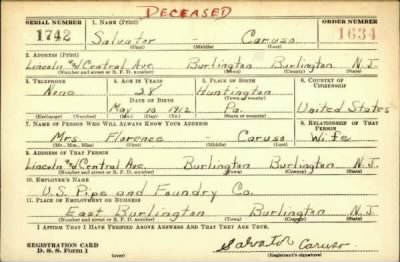 DECEASED
SERIAL NUMBER 1. NAME (Print) ORDER NUMBER
1742 Salvator - Caruso 1634
(First) (Middle) (Last)
2. ADDRESS (Print)
Lincoln and Central Ave. Burlington Burlington N.J.
(Number and street or R. F. D. number) (Town) (County) (State)
3. TELEPHONE 4. AGE IN YEARS 5. PLACE OF BIRTH 6. COUNTRY OF CITIZENSHIP
None 28 Huntington
DATE OF BIRTH (Town or county)
May 10 1912 Pa. United States
(Exchange) (Number) (Mo.) (Day) (Yr.) (State or country)
7. NAME OF PERSON WHO WILL ALWAYS KNOW YOUR ADDRESS 8. RELATIONSHIP OF THAT PERSON
Mrs. Florence - Caruso Wife
(Mr., Mrs., Miss) (First) (Middle) (Last)
9. ADDRESS OF THAT PERSON
Lincoln and Central Ave. Burlington Burlington N.J.
(Number and street or R. F. D. number) (Town) (County) (State)
10. EMPLOYER'S NAME
U.S. Pipe and Foundry Co.
11. PLACE OF EMPLOYMENT OR BUSINESS
East Burlington Burlington N.J.
(Number and street or R. F. D. number) (Town) (County) (State)
I AFFIRM THAT I HAVE VERIFIED ABOVE ANSWERS AND THAT THEY ARE TRUE.
REGISTRATION CARD
D. S. S. Form 1
Salvator Caruso
(Registrant's signature)